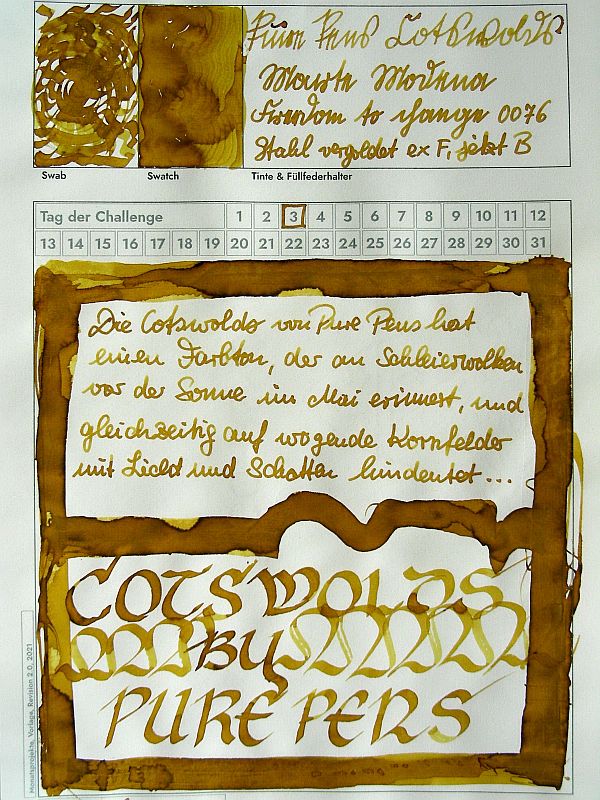 Pure Pens Cotswolds
Maiora Modena
Freedom to change 0076
Stahl vergoldet ex F, jetzt B
Swab
Swatch
Tinte & Füllfederhalter
Tag der Challenge 1 2 3 4 5 6 7 8 9 10 11 12
13 14 15 16 17 18 19 20 21 22 23 24 25 26 27 28 29 30 31
Die Cotswolds von Pure Pens hat
einen Farbton, der an Schleierwolken
vor der Sonne im Mai erinnert, und
gleichzeitig auf wogende Kornfelder
mit Licht und Schatten hindeutet ...
COTSWOLDS
BY
PURE PENS
Monatsprojekte, Vorlage, Revision 2.0, 2021